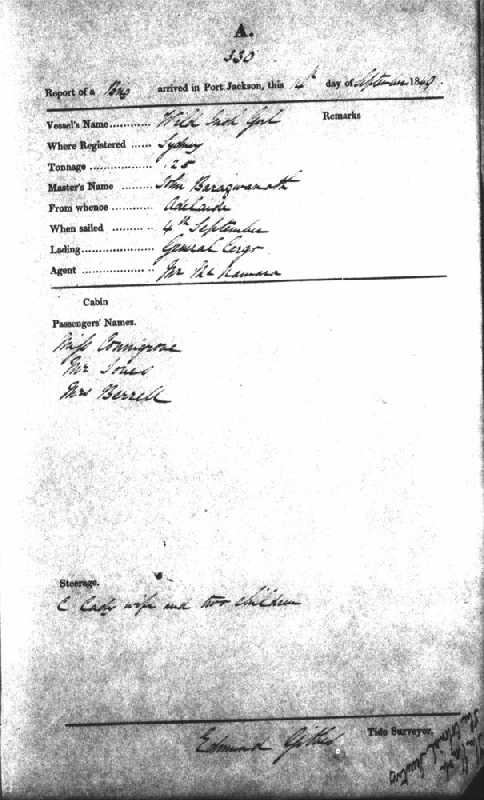 A.
330
Report of a Brig arrived in Port Jackson, this day of September 1849.
Vessel's Name ............ Wild Irish Girl
Remarks
Where Registered ...... Sydney
Tonnage .................. 125
Master's Name ......... John Baragwanath
From whence ............ Adelaide
When sailed .......... 4th September
Lading ..................... General Cargo
Agent ..................... Mr McNamara
Cabin
Passengers' Names.
Miss
Mr Jones
Mrs Berrell
Steerage.
wife and two children
Edmund Tide Surveyor.